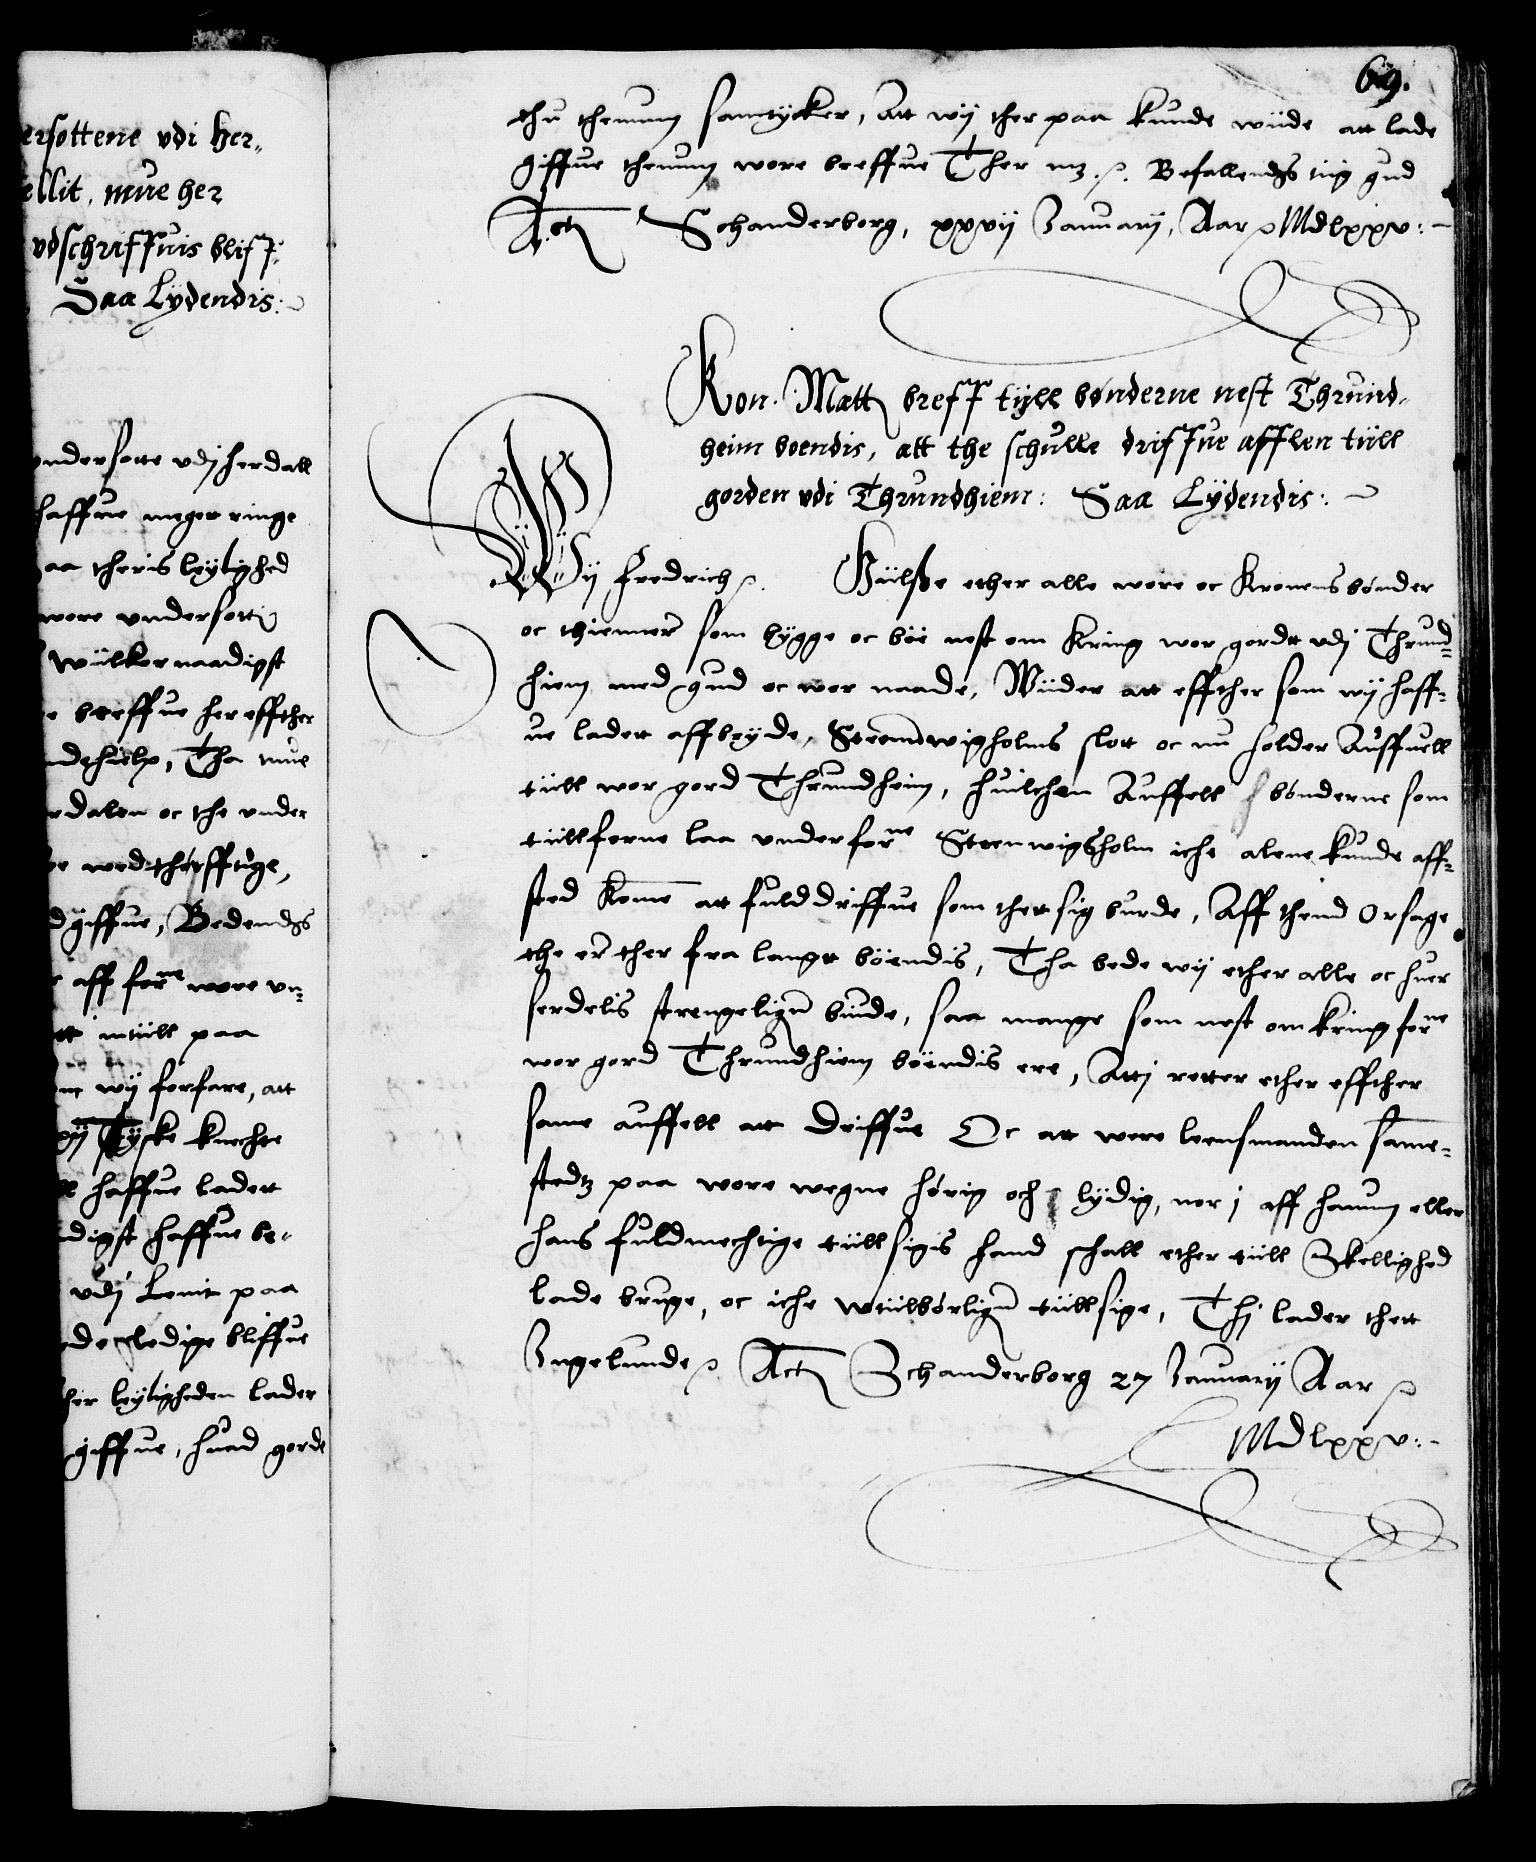 ersottene vdi her„
ellit, mue her
vdschriffuis bliff:
Saa Lydendis:
vndersotte vdj herdall
haffue meget ringe
paa theris leylighed
wore vndersotte
wülkor naadigst
breffue her effther
Tha mue
rdalen oc the vnder
wedthørfftige,
giffue, Bedendis
aff forne wore vn¬
intüll paa
wij forfare, att
Tyske knechte
haffue ladett
digst haffue be¬
vdj Lenit paa
ledige bliffue
her leyligheden lader
giffue, huad gorde
69.
thu thennum samtycker, Att wij ther paa kunde wiide att lade
giffue thennum wore breffue Ther mz. Befallendis tig gud
Act Schanderborg, xxvij January, Aar Mdlxxv:
Kon. Matt breff tyll bønderne nest Thrund¬
heim boendis, att the schulle driffue afflen tüll
gorden vdi Thrundhiem: Saa Lydendis:
Wij Fredrich. Hülße ether alle wore oc Kronens bønder
oc thienner som bygge oc boe nest om kring wor gordt vdj Thrund¬
hiem med gud oc wor naade, Wiider att effther som wij haff¬
ue ladett affbryde, Steenwigholms slott oc nu holder Auffuell
tüll wor gord Thrundheim, huilchen Auffell bønderne som
tüllforne laa vnder forne Steenwigsholm iche alene kunde aff¬
sted kome att fulddriffue som thet sig burde, Aff thend Orsage
the er ther fra langt böendis, Tha bede wij ether alle oc huer
serdelis strengeligen biude, saa mange som nest omkring forne
wor gord Thrundhiem böendis ere, Attj retter ether effther
same auffell att driffue Oc att were leensmanden same¬
stedtz paa wore wegne hörig och lydig, nor j aff hanum eller
hans fuldmechtige tüllsigis hand schall ether tüll Skellighed
lade bruge, oc iche wtülbørligen tüllsige, Thj lader thett
Jngelunde Act Schanderborg 27 January Aar
Mdlxxv: